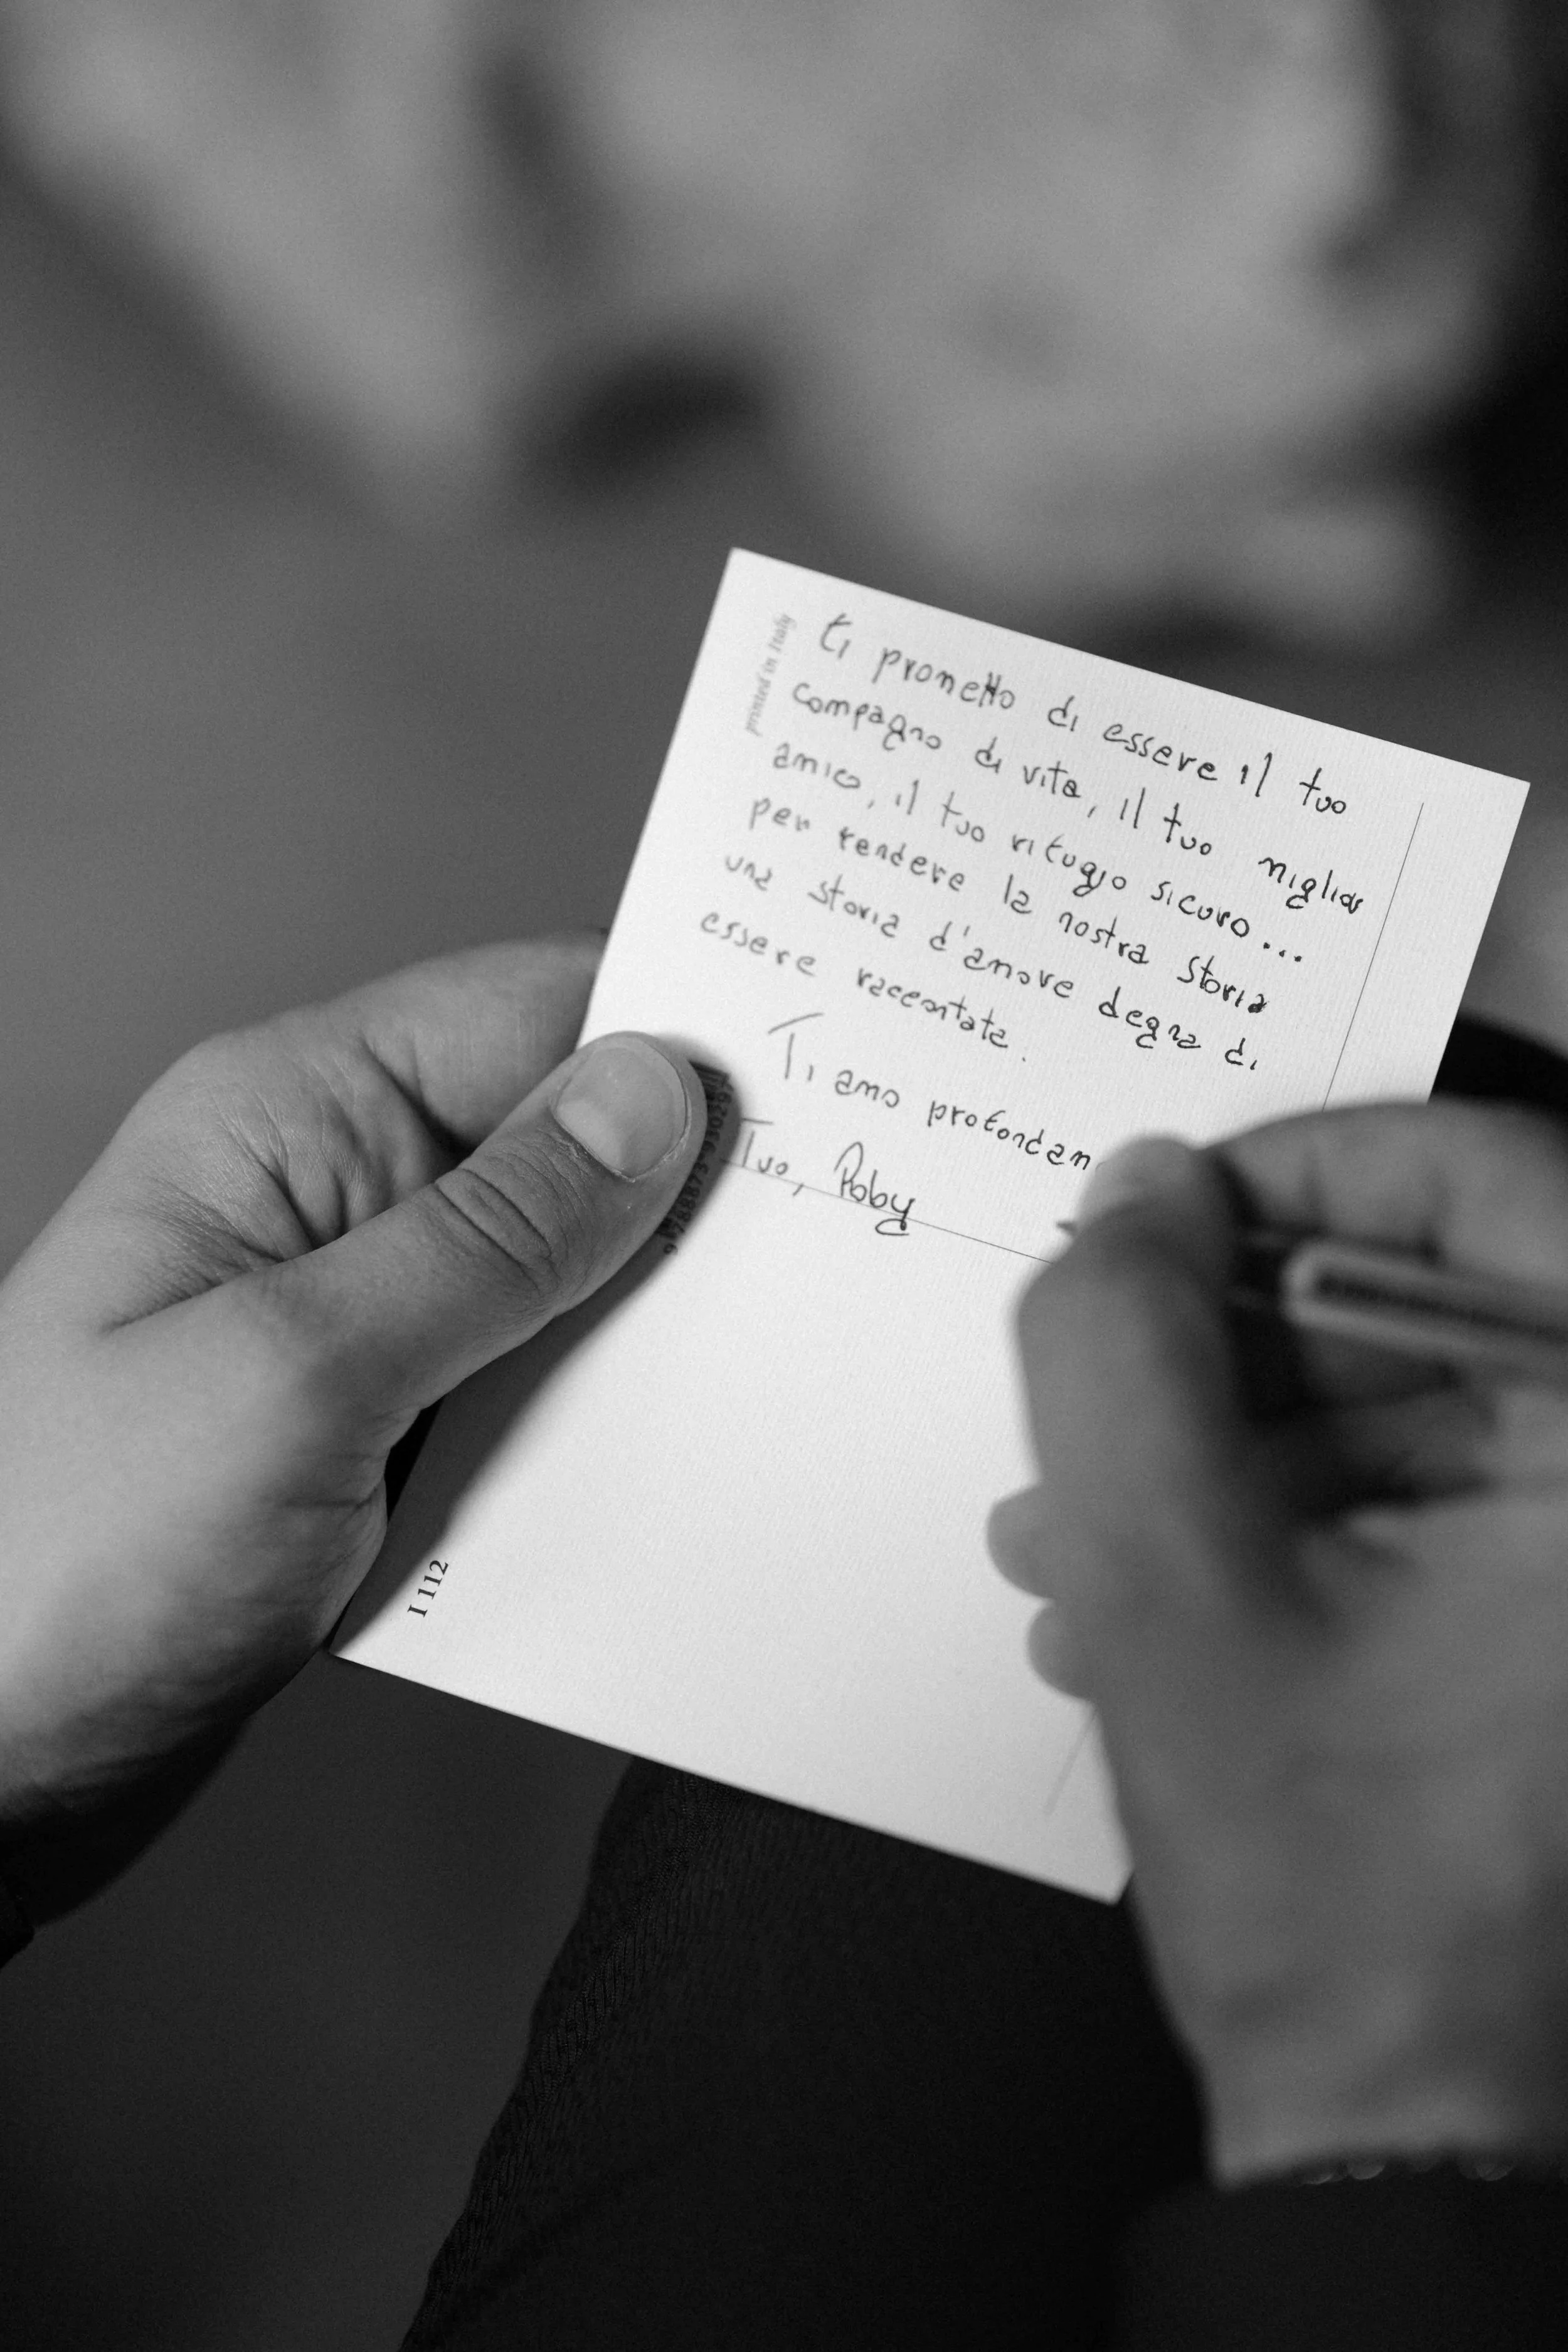 printed in Italy
ti prometto di essere il tuo
compagno di vita, il tuo miglior
amico, il tuo rifugio sicuro...
per rendere la nostra storia
una storia d'amore degna di
essere raccontata.
Ti amo profondam
Tuo, Roby
I 112